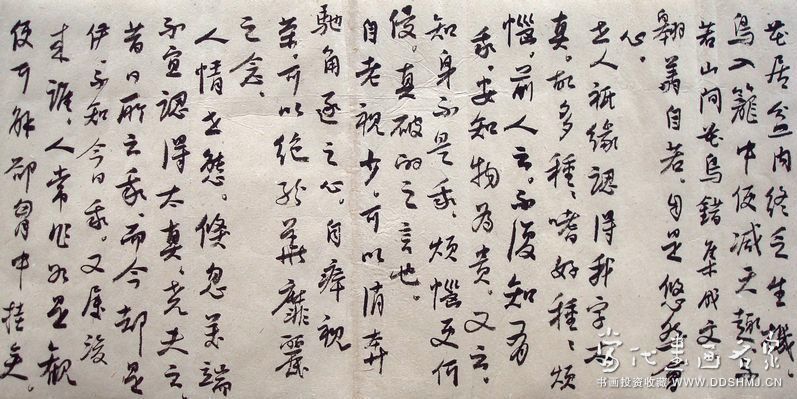 花居盆内终乏生機。
鸟入籠中便减天趣。不
若山间花鸟錯集成文，
翱翔自若，自是悠然會
心。
世人祗缘認得我字太
真。故多種、嗜好種、煩
惱。前人云。不復知有
我，安知物为贵。又云。
知身不是我，煩惱更何
侵。真破的之言也。
自老視少，可以消奔
馳角逐之心。自瘁視
榮，可以绝纷華靡麗
之念。
人情世態，倏忽萬端
不宜認得太真，尧夫云。
昔日所云我，而今却是
伊，不知今日我，又属後
来誰，人常作如是觀
便可解却胸中挂矣。
当代书画名家
书画投资收藏 WWW.DDSHMJ.COM